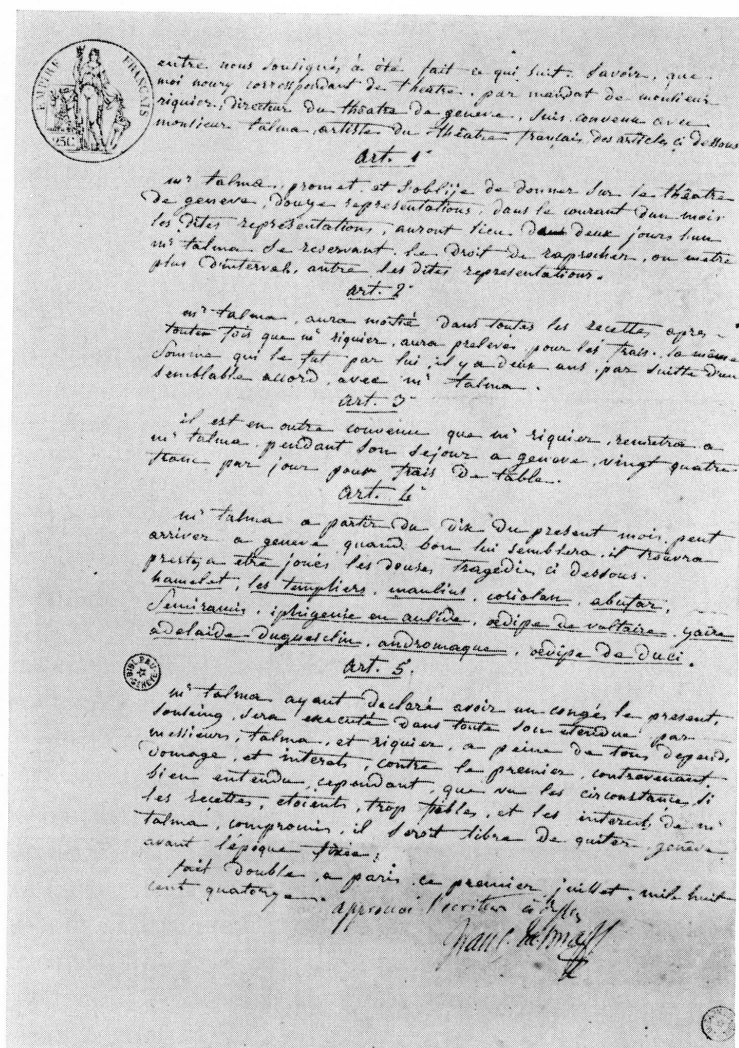 EMPIRE FRANÇAIS
25C
entre nous soussignés à été fait ce qui suit. Savoir, que
moi noury correspondant de théatre. par mandat de monsieur
riquier, directeur du théatre de geneve, suis convenu avec
monsieur talma, artiste du théatre français, des articles ci dessous
art. 1.
mr talma, promet, et s'oblije de donner sur le théâtre
de geneve, douze representations, dans le courant d'un mois
les dites representations, auront lieu de deux jours l'un
mr talma se reservant, le droit de raprocher, ou metre
plus d'interval, entre les dites representations.
art. 2.
mr talma, aura moitié dans toutes les recettes apres
toutes fois que mr riquier, aura prelevés pour les frais, la même
somme qui le fut par lui, il y a deux ans, par suitte d'un
semblable accord, avec mr talma.
art. 3.
il est en outre convenu que mr riquier, remetra a
mr talma, pendant son sejour a geneve, vingt quatre
franc par jour pour frais de table.
art. 4.
mr talma a partir du dix du present mois, peut
arriver a geneve, quand bon lui semblera, il trouvra
prets a etre joués les douses tragedies ci dessous.
hamelet, les templiers, manlius, coriolan, abufar,
Semiramis, iphigenie en aulide, œdipe de voltaire, zaïre
adelaide duguesclin, andromaque, œdipe de duci.
art. 5.
BIBL. PUB. GENÈVE
mr talma ayant declaré avoir un congés le present,
sera executé dans toute son etendue par
messieurs, talma, et riquier, a peine de tous depends,
domage, et interets, contre le premier, contrevenant,
bien entendu, cependant, que vu les circonstances, si
les recettes, etoients, trop foibles, et les interets de mr
talma, compromis, il seroit libre de quiter geneve
avant l'epoque fixée;
fait double, a paris ce premier, juillet, mile huit
cent quatorze.
approuvé l'ecriture ci